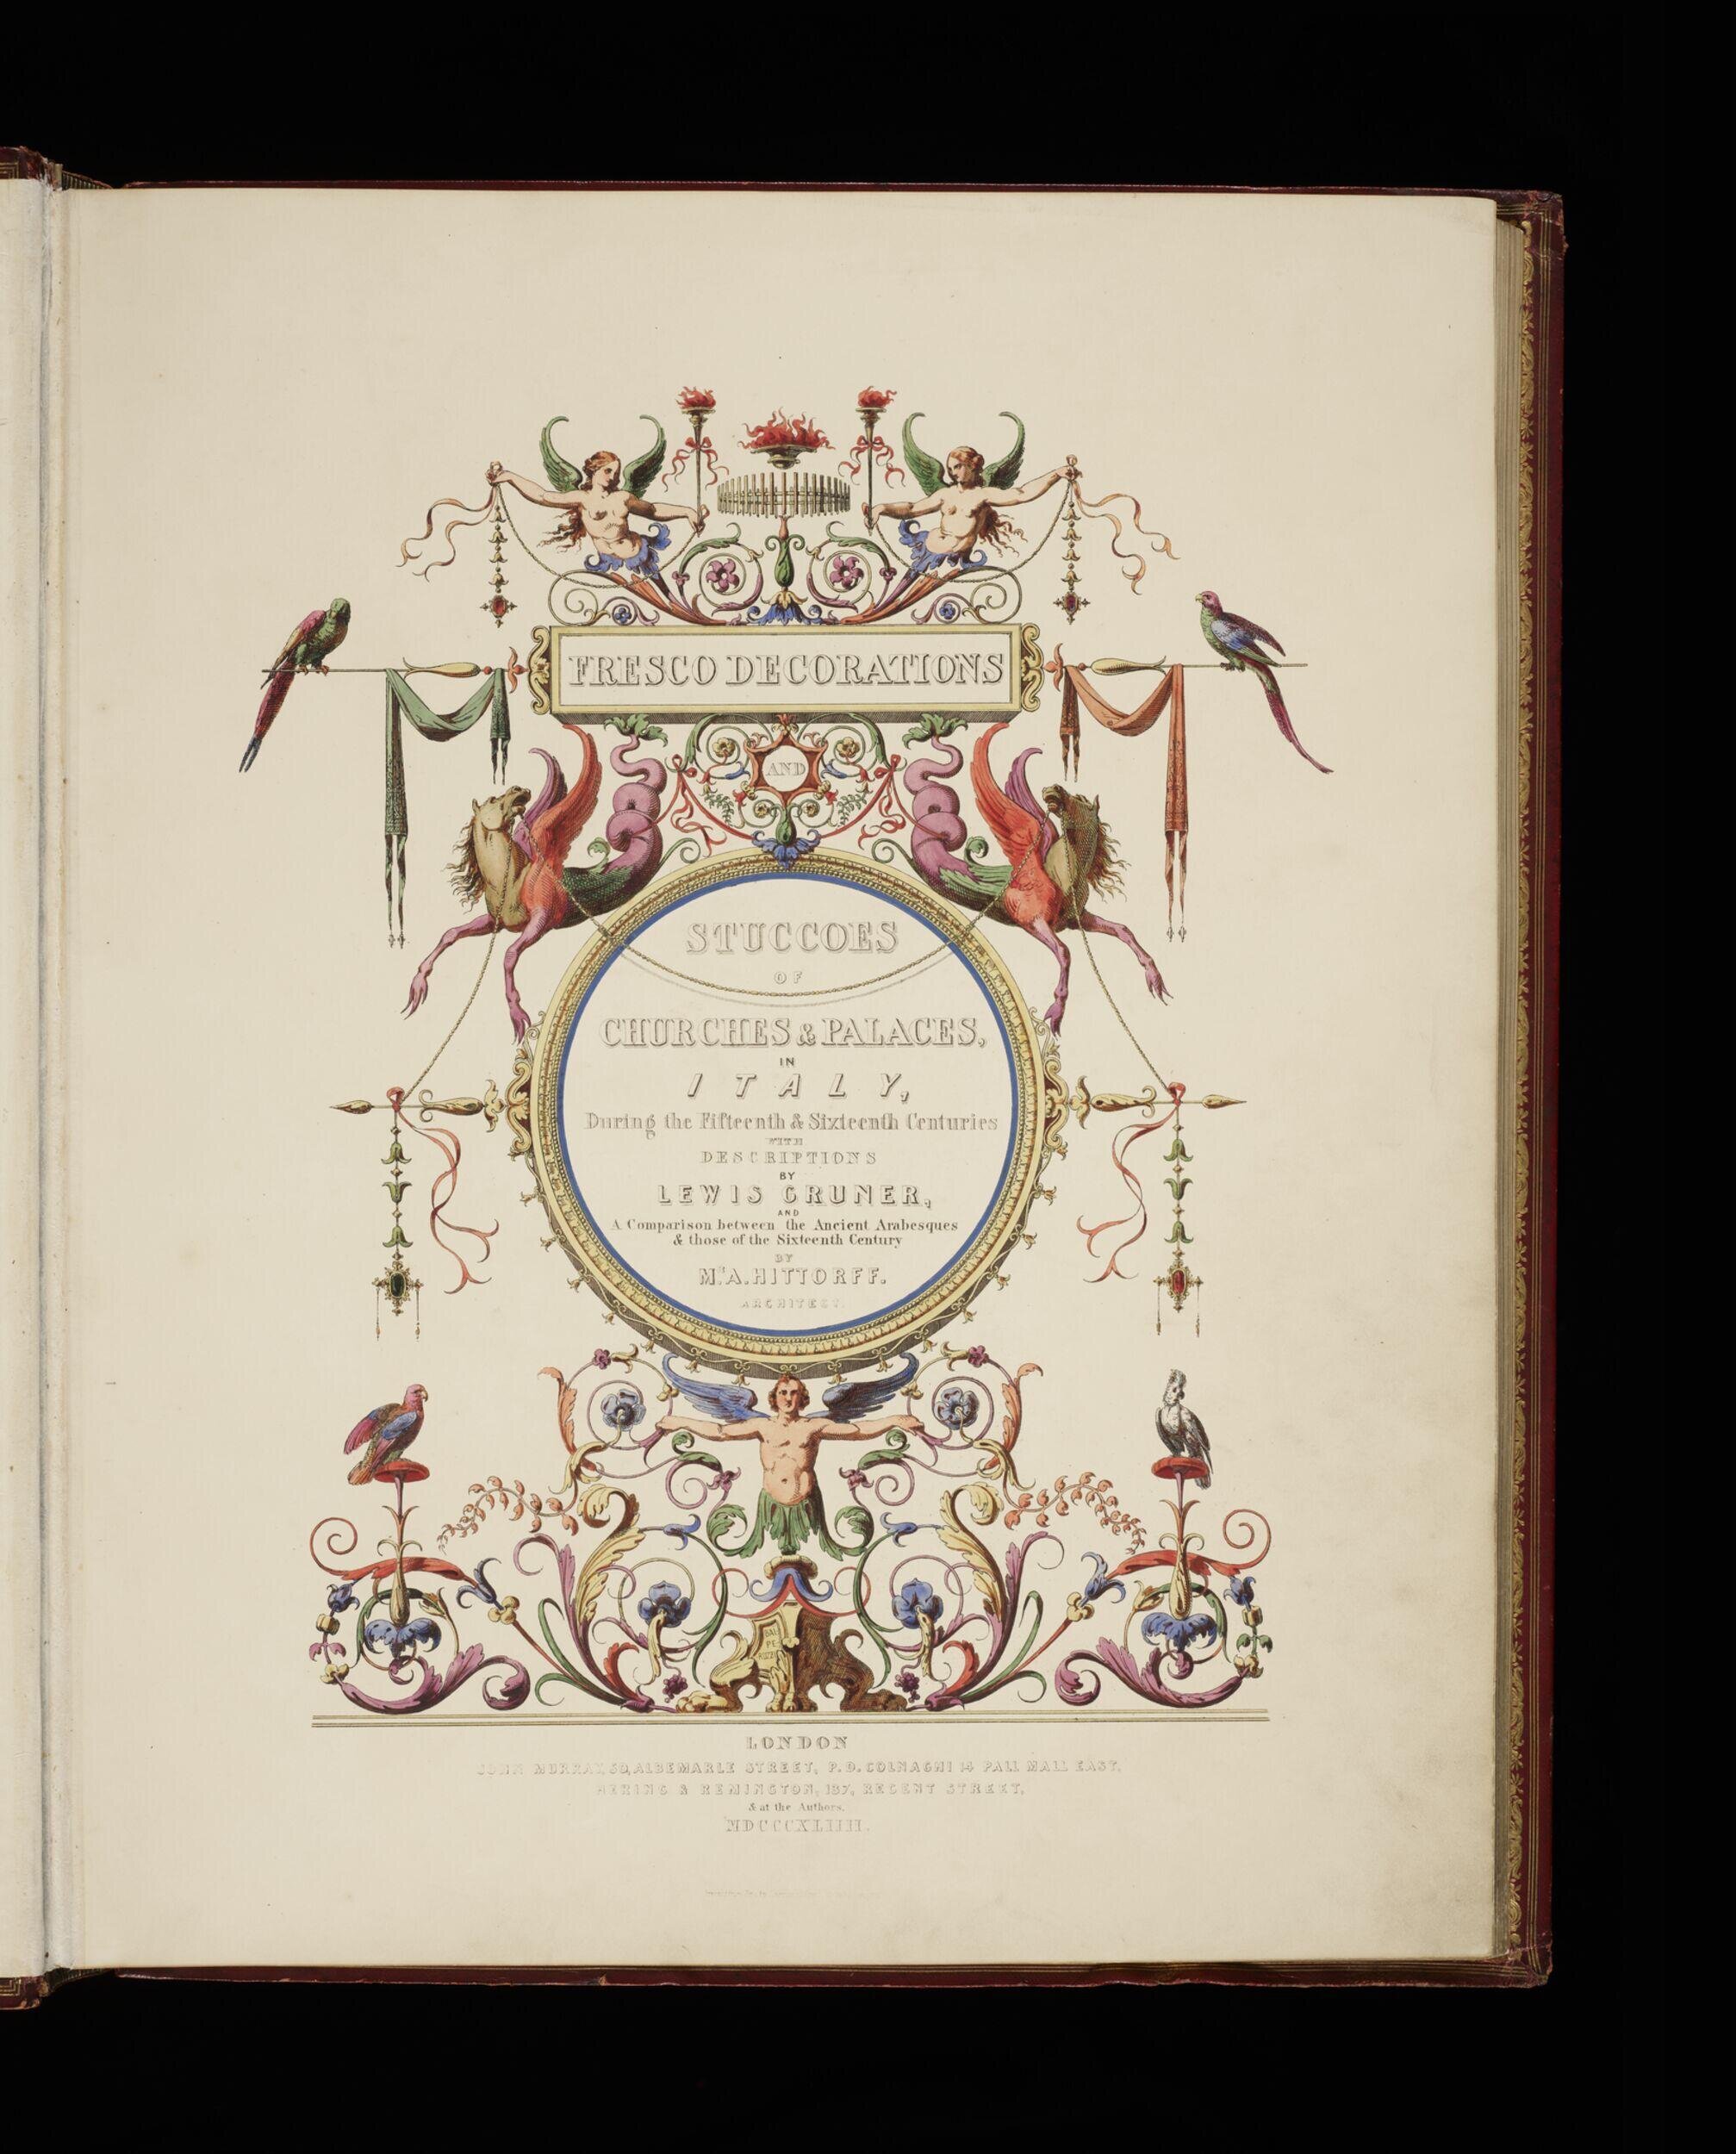 FRESCO DECORATIONS
AND
STUCCOES
OF
CHURCHES & PALACES,
IN
ITALY,
During the Fifteenth & Sixteenth Centuries
WITH
DESCRIPTIONS
BY
LEWIS GRUNER,
AND
A Comparison between the Ancient Arabesques
& those of the Sixteenth Century
BY
Mr. A. HITTORFF.
ARCHITECT.
BAL
PE
RUZZI
LONDON
JOHN MURRAY, 50, ALBEMARLE STREET, P. D. COLNAGHI 14 PALL MALL EAST,
HERING & REMINGTON, 137, REGENT STREET,
& at the Authors.
MDCCCXLIIII.